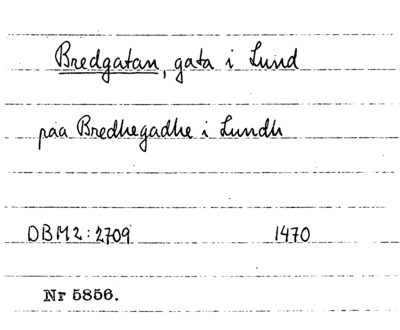 Bredgatan, gata i Lund
paa Bredhegadhe i Lundh
DBM2:2709 1470
Nr 5856.